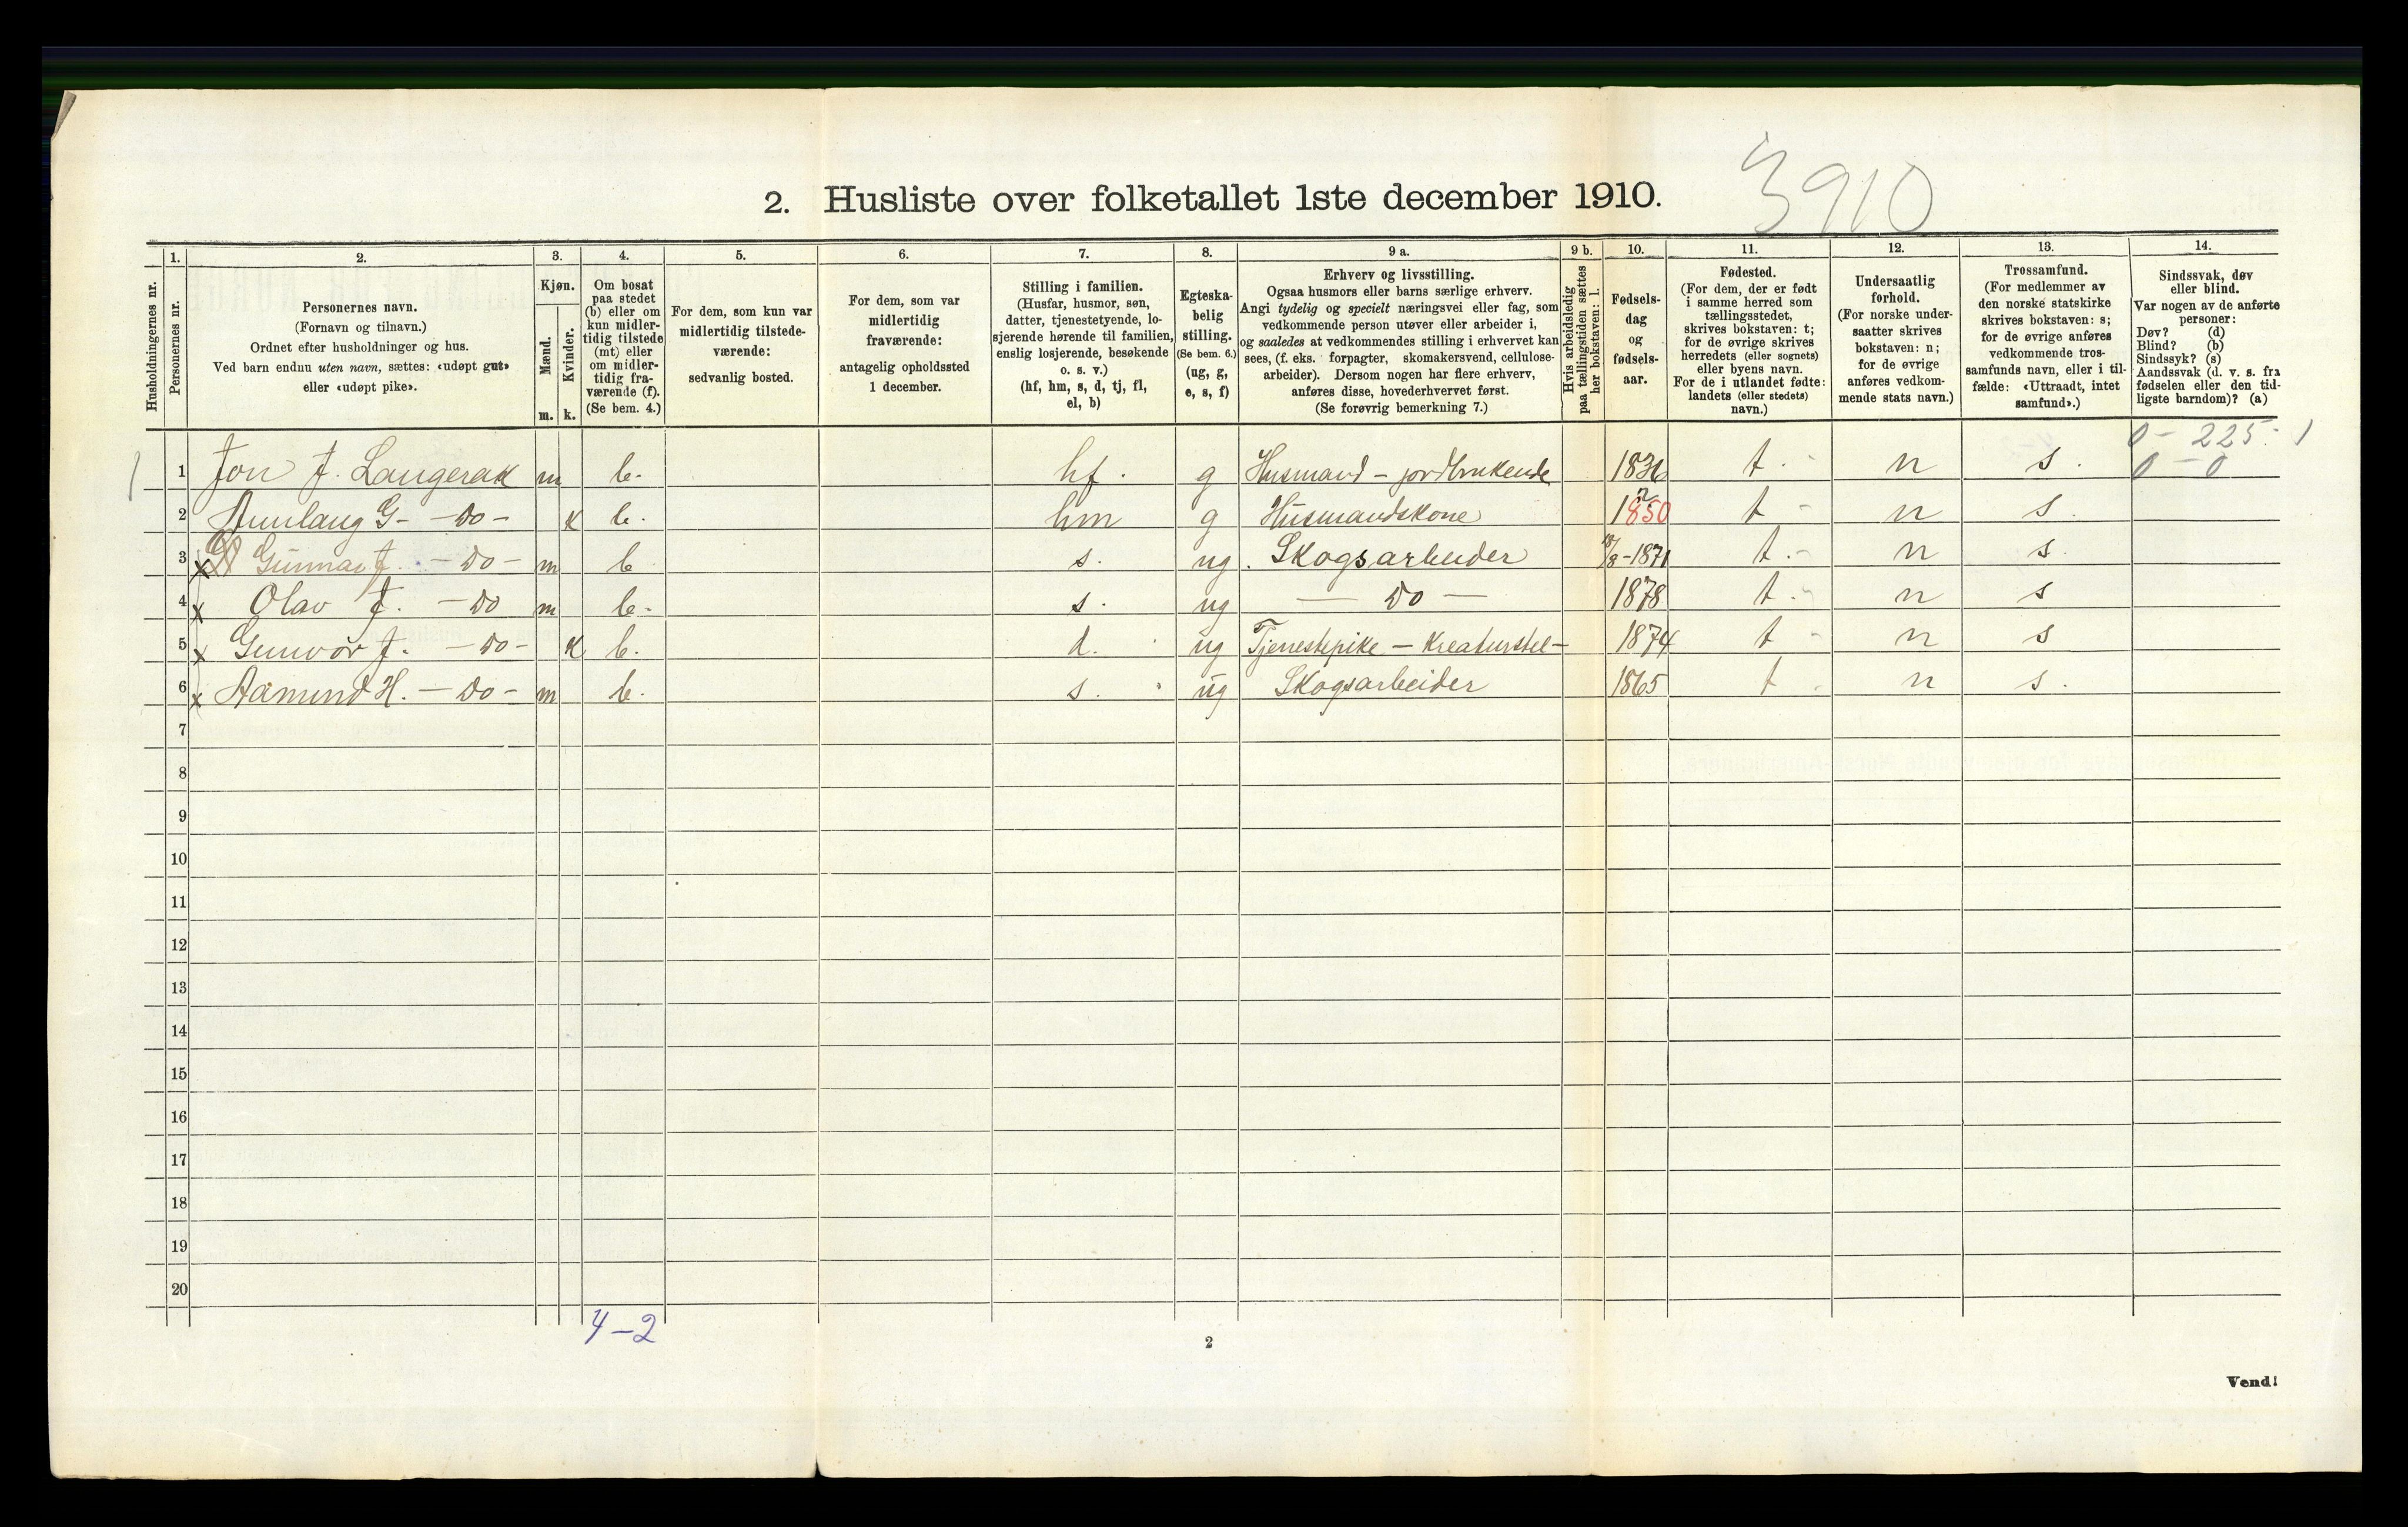 3910
2. Husliste over folketallet 1ste december 1910.
Husholdningernes nr.
1. Personernes nr.
2. Personernes navn.
(Fornavn og tilnavn.)
Ordnet efter husholdninger og hus.
Ved barn endnu uten navn, sættes: «udøpt gut»
eller «udøpt pike».
3. Kjøn.
Mænd. m.
Kvinder. k.
4. Om bosat
paa stedet
(b) eller om
kun midler-
tidig tilstede
(mt) eller
om midler-
tidig fra-
værende (f).
(Se bem. 4.)
5. For dem, som kun var
midlertidig tilstede-
værende:
sedvanlig bosted.
6. For dem, som var
midlertidig
fraværende:
antagelig opholdssted
1 december.
7. Stilling i familien.
(Husfar, husmor, søn,
datter, tjenestetyende, lo-
sjerende hørende til familien,
enslig losjerende, besøkende
o. s. v.)
(hf, hm, s, d, tj, fl,
el, b)
8. Egteska-
belig
stilling.
(Se bem. 6.)
(ug, g,
e, s, f)
9 a. Erhverv og livsstilling.
Ogsaa husmors eller barns særlige erhverv.
Angi tydelig og specielt næringsvei eller fag, som
vedkommende person utøver eller arbeider i,
og saaledes at vedkommendes stilling i erhvervet kan
sees, (f. eks. forpagter, skomakersvend, cellulose-
arbeider). Dersom nogen har flere erhverv,
anføres disse, hovederhvervet først.
(Se forøvrig bemerkning 7.)
9 b. Hvis arbeidsledig
paa tællingstiden sættes
her bokstaven: l.
10. Fødsels-
dag
og
fødsels-
aar.
11. Fødested.
(For dem, der er født
i samme herred som
tællingsstedet,
skrives bokstaven: t;
for de øvrige skrives
herredets (eller sognets)
eller byens navn.
For de i utlandet fødte:
landets (eller stedets)
navn.)
12. Undersaatlig
forhold.
(For norske under-
saatter skrives
bokstaven: n;
for de øvrige
anføres vedkom-
mende stats navn.)
13. Trossamfund.
(For medlemmer av
den norske statskirke
skrives bokstaven: s;
for de øvrige anføres
vedkommende tros-
samfunds navn, eller i til-
fælde: «Uttraadt, intet
samfund».)
14. Sindssvak, døv
eller blind.
Var nogen av de anførte
personer:
Døv? (d)
Blind? (b)
Sindssyk? (s)
Aandssvak (d. v. s. fra
fødselen eller den tid-
ligste barndom)? (a)
0 - 225 - 1
0 - 0
1 1 Jon J. Langerak m b. hf. g Husmand - jordbrukende 1836 t. n s.
2 Aunlaug G - Do - k b. hm g Husmandskone 1850 t - n s.
3 x Gunnar J. - Do - m b s. ug. Skogsarbeider 1871 t. - n s.
4 x Olav J. - Do m b. s. ug - Do - 1878 t. n s
5 x Gunvor J. - Do - k b. d. ug Tjenestepike - Kreaturstel - 1874 t - n s
6 x Aamund H. - Do - m b. s. ug Skogsarbeider 1865 t n s.
7
8
9
10
11
12
13
14
15
16
17
18
19
20
4-2
2
Vend!